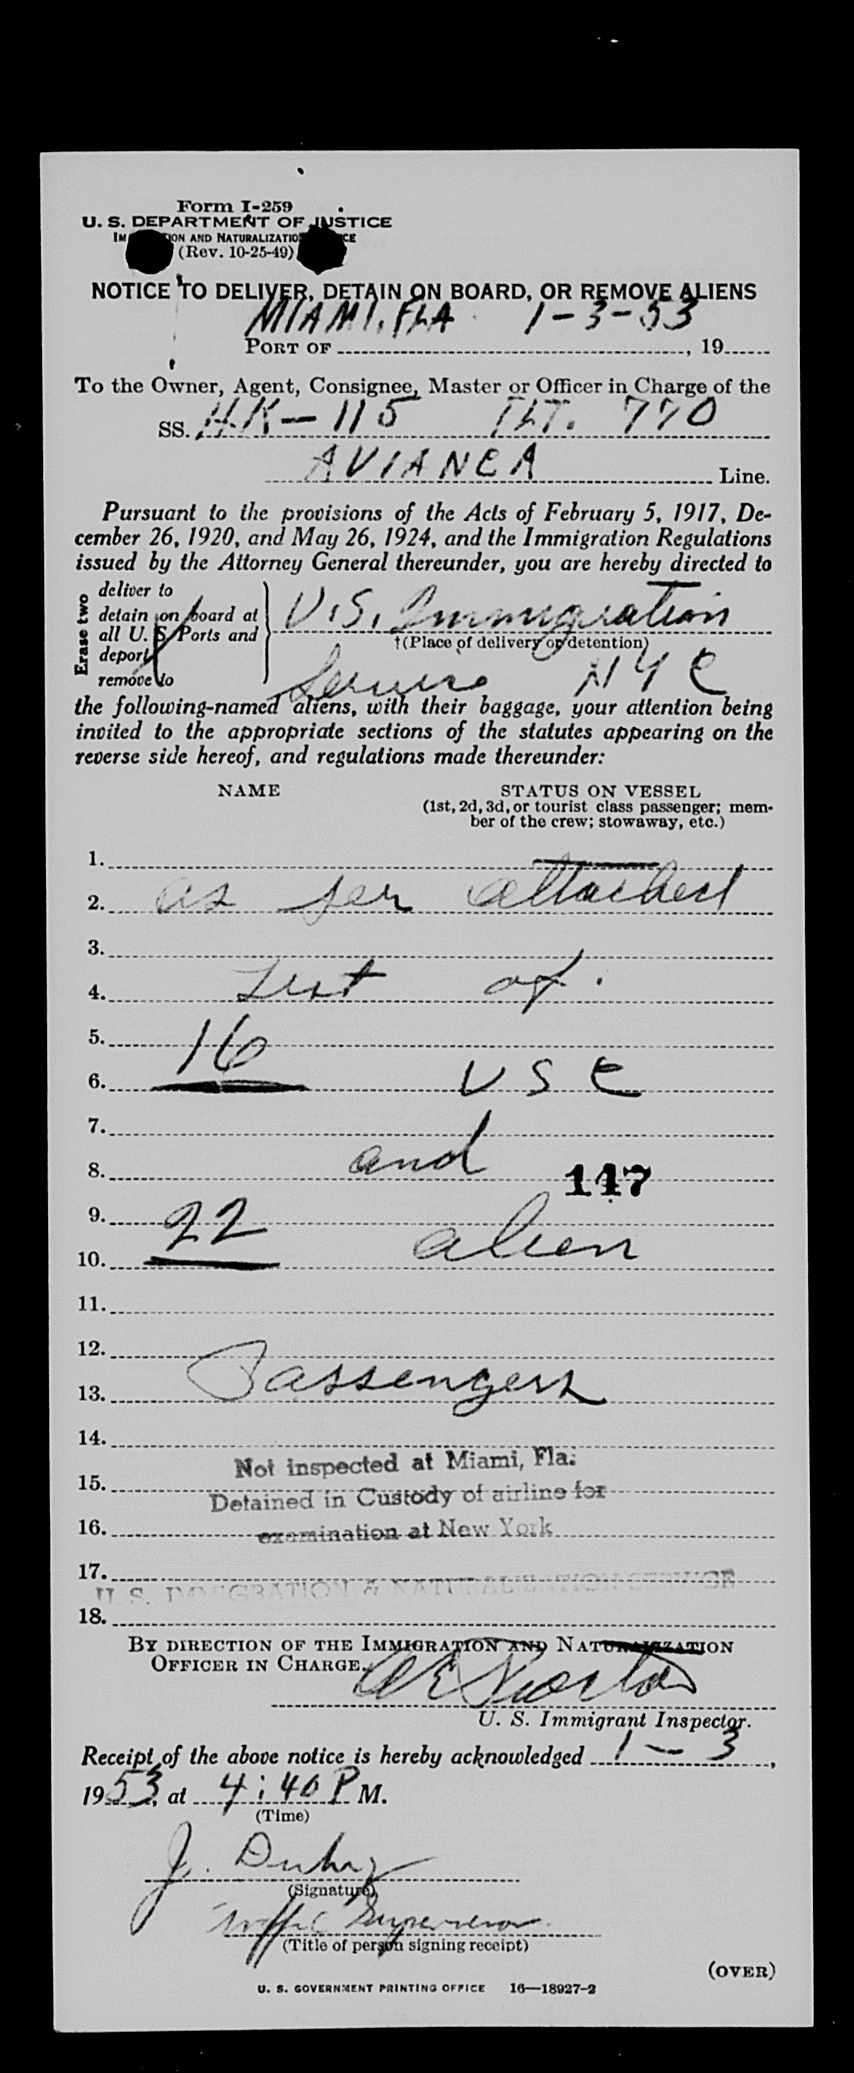 Form I-259
U. S. DEPARTMENT OF JUSTICE
IMMIGRATION AND NATURALIZATION SERVICE
(Rev. 10-25-49)
NOTICE TO DELIVER, DETAIN ON BOARD, OR REMOVE ALIENS
MIAMI, FLA 1-3-53
PORT OF , 19
To the Owner, Agent, Consignee, Master or Officer in Charge of the
SS. HK-115 FLT. 770
AVIANCA Line.
Pursuant to the provisions of the Acts of February 5, 1917, De-
cember 26, 1920, and May 26, 1924, and the Immigration Regulations
issued by the Attorney General thereunder, you are hereby directed to
Erase two
deliver to
detain on board at
all U. S. Ports and
deport
remove to
U.S. Immigration
†(Place of delivery or detention)
Service NYC
the following-named aliens, with their baggage, your attention being
invited to the appropriate sections of the statutes appearing on the
reverse side hereof, and regulations made thereunder:
NAME STATUS ON VESSEL
(1st, 2d, 3d, or tourist class passenger; mem-
ber of the crew; stowaway, etc.)
1.
2. as per attached
3.
4. list of.
5.
6. 16 USC
7.
8. and 147
9.
10. 22 alien
11.
12.
13. Passengers
14.
Not inspected at Miami, Fla.
15. Detained in Custody of airline for
16. examination at New York
17.
U. S. IMMIGRATION & NATURALIZATION SERVICE
18.
BY DIRECTION OF THE IMMIGRATION AND NATURALIZATION
OFFICER IN CHARGE.
U. S. Immigrant Inspector.
Receipt of the above notice is hereby acknowledged 1-3,
1953, at 4:40 P M.
(Time)
J.
(Signature)
Traffic Supervisor
(Title of person signing receipt)
(OVER)
U. S. GOVERNMENT PRINTING OFFICE 16—18927-2